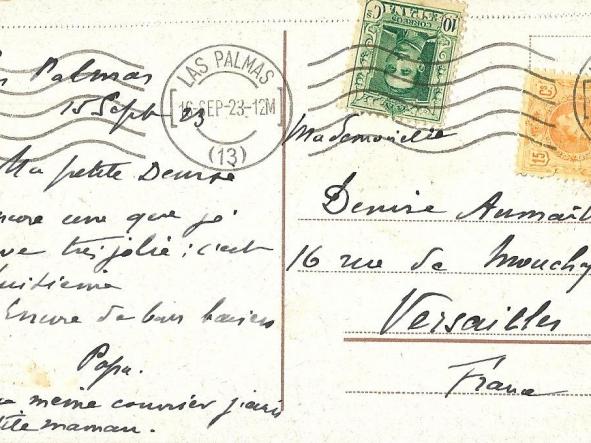 Palmas
15 Sept 23
Ma petite Denise
encore une que je
trouve très jolie : c'est
huitième
Encore de bons baisers
Papa.
même courrier j'écris
petite maman.
LAS PALMAS
16-SEP-23-12M
(13)
CORREOS
10 Cs
15 Cs
Mademoiselle
Denise Aumaill
16 rue de Mouchy
Versailles
France